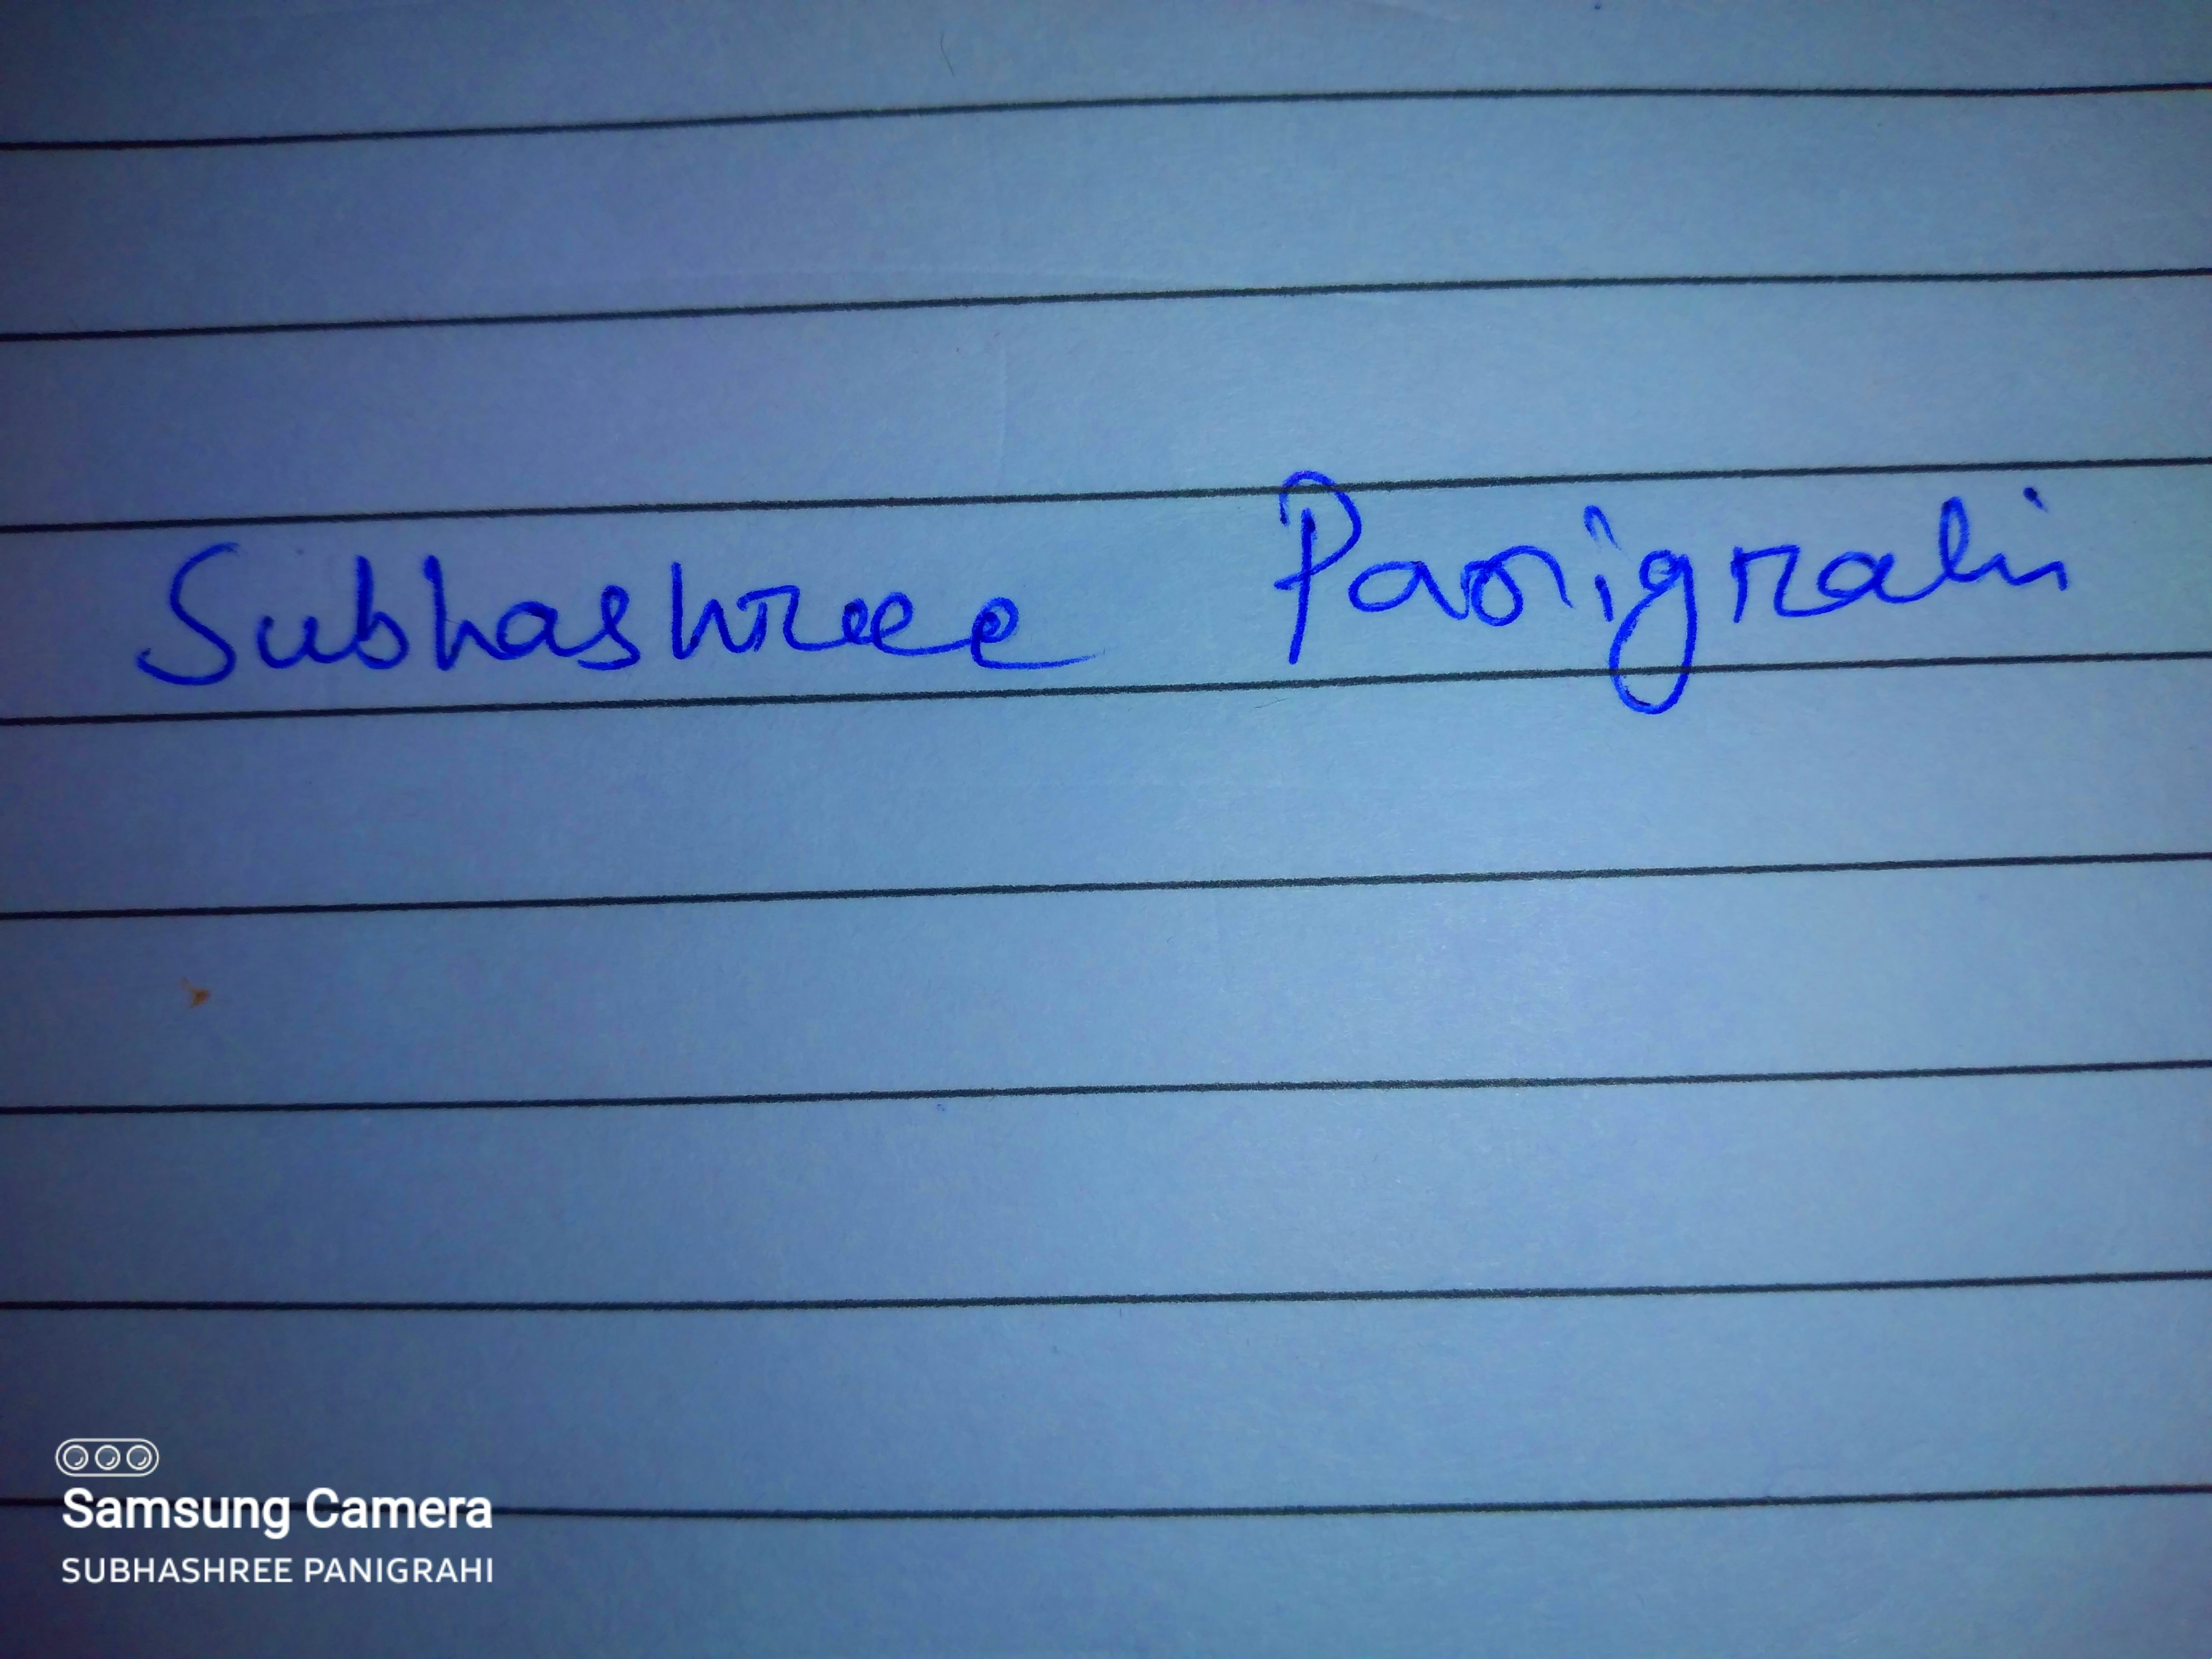 Subhashree Panigrahi
Samsung Camera
SUBHASHREE PANIGRAHI